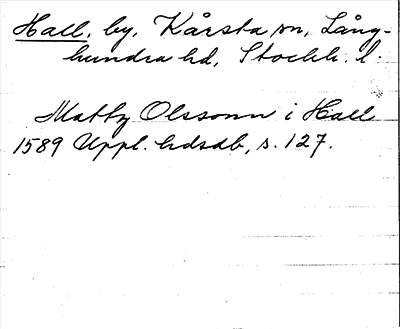 Hall, by, Kårsta sn, Lång-
hundra hd, Stockh. l.
Matts Olssonn i Hall
1589 Uppl. hdsdb, s. 127.